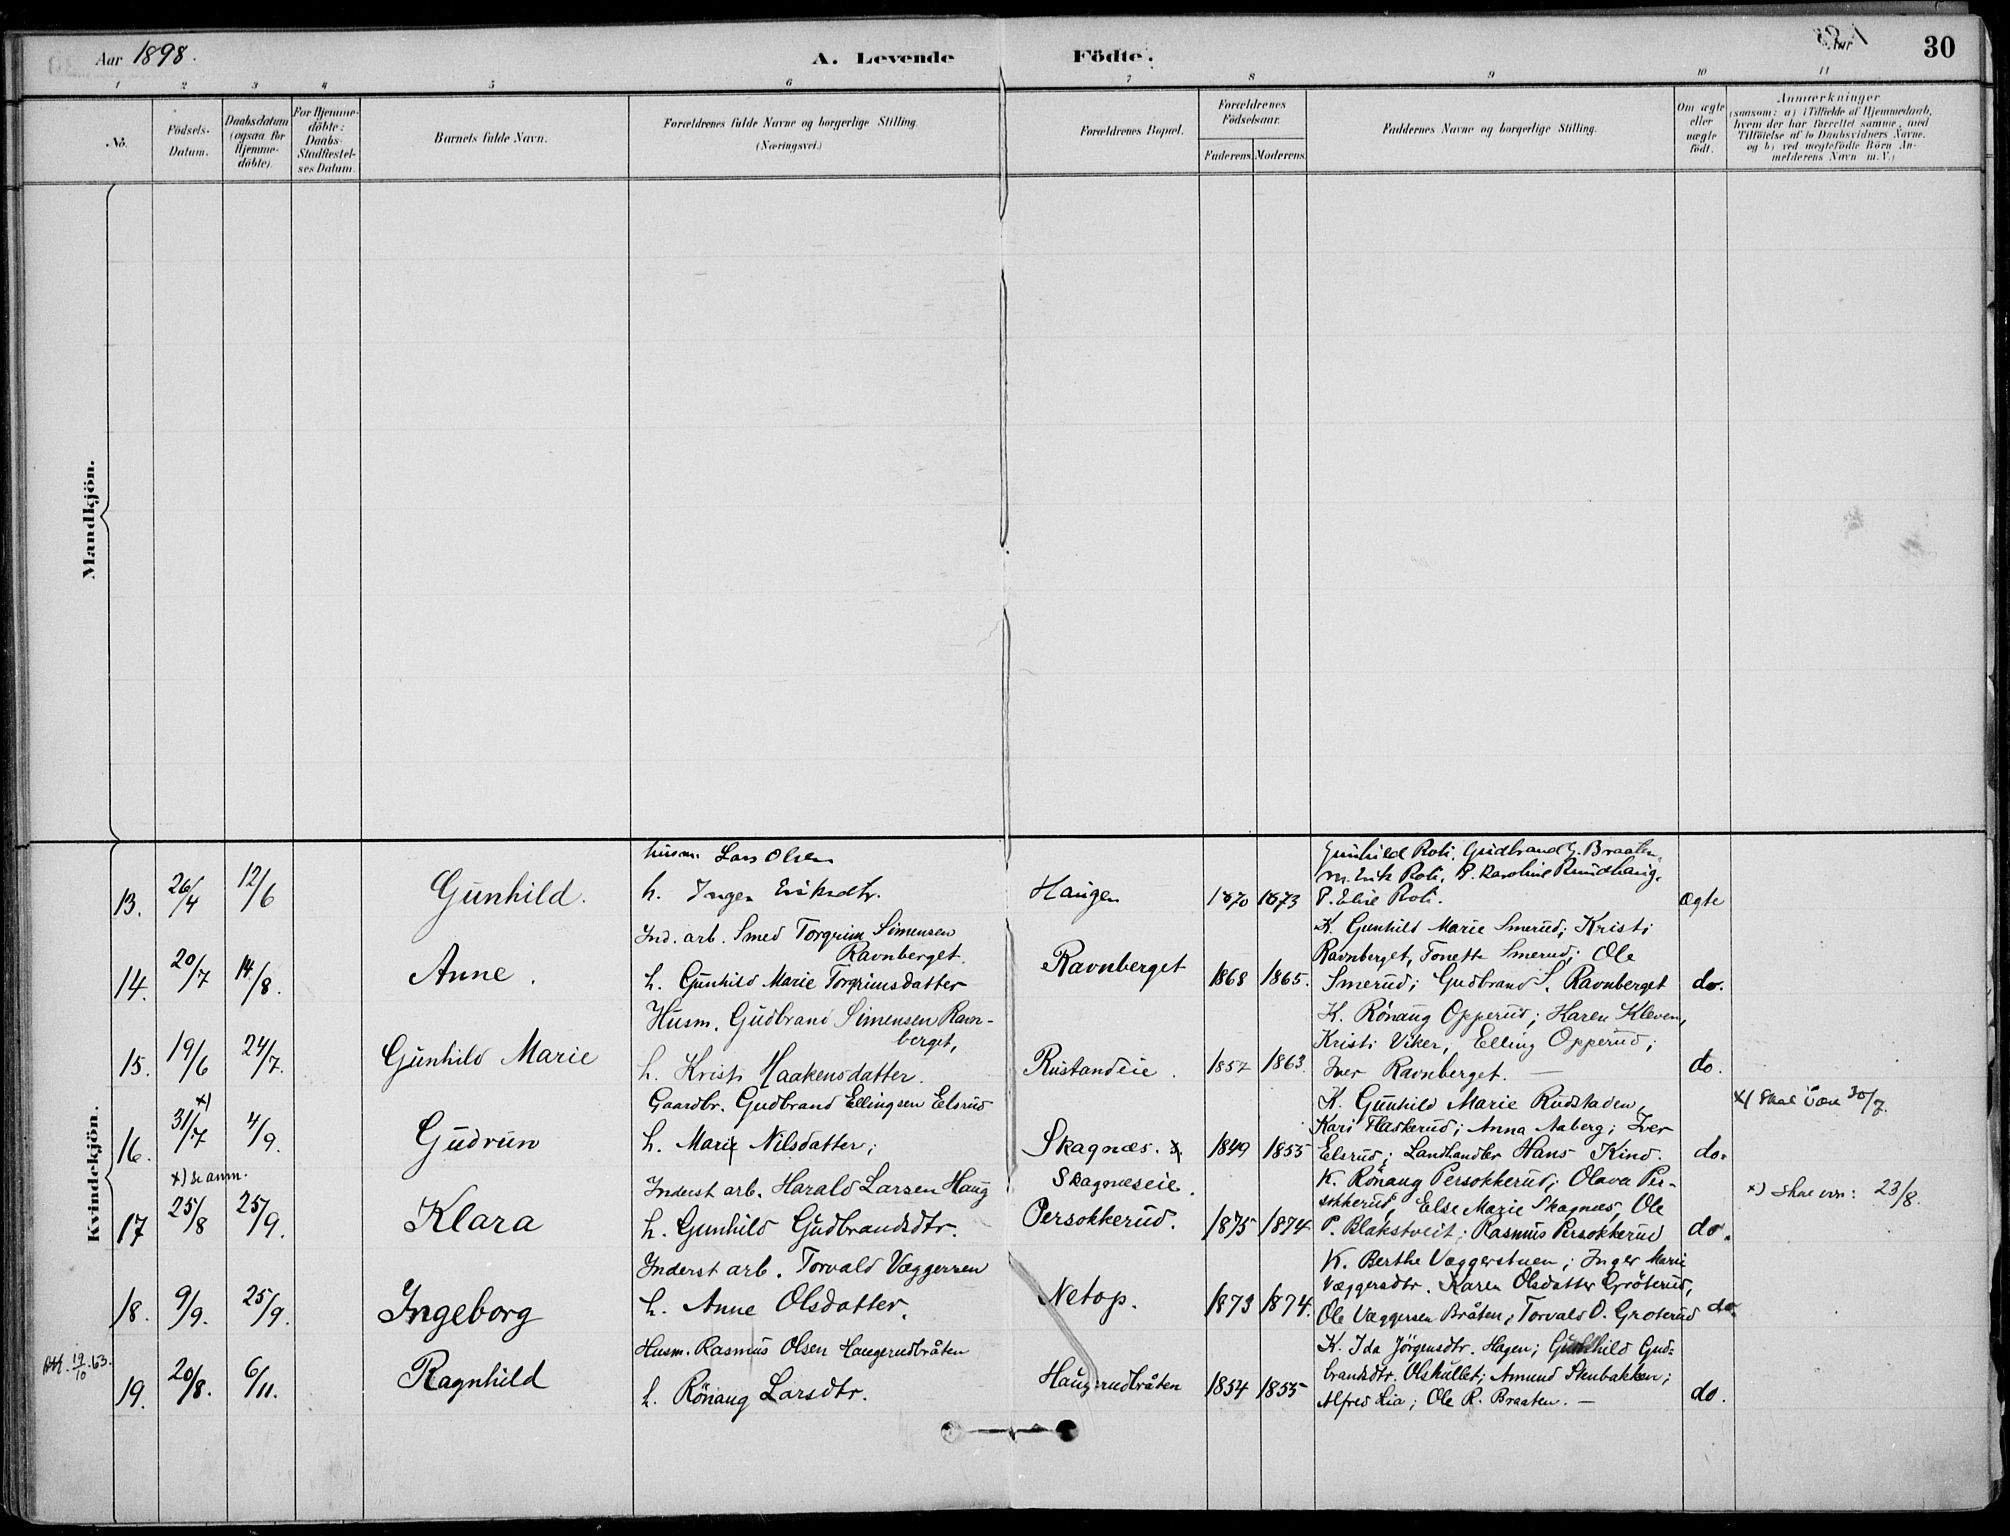 Aar 1898.
A. Levende Födte.
Aar
30
1 2 3 4 5 6 7 8 9 10 11
No.
Födsels-Datum.
Daabsdatum (ogsaa for Hjemme-döbte).
For Hjemme-döbte: Daabs-Stadfæstel-ses Datum.
Barnets fulde Navn.
Forældrenes fulde Navne og borgerlige Stilling.
(Næringsvei.)
Forældrenes Bopæl.
Forældrenes Födselsaar.
Faderens. Moderens.
Faddernes Navne og borgerlige Stilling.
Om ægte eller uægte födt.
Anmærkninger
(saasom: a) i Tilfælde af Hjemmedaab,
hvem der har forrettet samme, med
Tilföielse af to Daabsvidners Navne.
og b) ved uægtefödte Börn An-
melderens Navn m. V.)
Mandkjön.
Kvindekjön.
husm. Lars Olsen
Gunhild Roti. Gudbrand G. Braaten,
M. Erik Roti. P. Karoline Rundhaug.
13. 26/4 12/6 Gunhild. h. Inger Eriksdtr. Haugen 1870 1873 P. Elise Roti. ægte
Ind. arb. Smed Torgrim Simensen
Ravnberget.
K. Gunhild Marie Smerud; Kristi
Ravnberget, Tonette Smerud; Ole
14. 20/7 14./8. Anne. h. Gunhild Marie Torgrimsdatter Ravnberget 1868 1865. Smerud; Gudbrand S. Ravnberget do.
Husm. Gudbrand Simensen Ravn-
berget,
K. Rönaug Opperud; Karen Kleven,
Kristi Viker, Elling Opperud;
15. 19/6 24/7. Gunhild Marie h. Kristi Haakensdatter. Rustandeie. 1857 1863. Iver Ravnberget. — do.
Gaardbr. Gudbrand Ellingsen Elsrud
K. Gunhild Marie Rudstaden,
Kari Flaskerud; Anna Aaberg; Iver
x) Skal være 30/7.
16. 31/7 x) 4/9. Gudrun h. Marie Nilsdatter; Skagnæs. x. 1849 1855 Elsrud; Landhandler Hans Kind. do.
x) se anm.
Inderst arb. Harald Larsen Haug
Skagnæseie.
K. Rönaug Persokkerud; Olava Per-
sokkerud, Else Marie Skagnæs, Ole
x) skal være: 23/8.
17 25/8 25/9. Klara h. Gunhild Gudbrandsdtr. Persokkerud. 1875 1874 P. Blakstveit; Rasmus Persokkerud do.
Inderst arb. Torvald Væggersen
K. Berthe Væggerstuen; Inger Marie
Væggersdtr. Karen Olsdatter Gröterud,
18. 9/9. 25/9. Ingeborg h. Anne Olsdatter. Netop. 1873 1874. Ole Væggersen Bråten; Torvald O. Groterud do.
Husm. Rasmus Olsen Haugerudbråten
K. Ida Jörgensdtr. Hagen; Gunhild Gud-
brandsdtr. Olshullet; Amund Stubakken;
19/10.63.
19. 20/8. 6/11. Ragnhild h. Rönaug Larsdtr. Haugerudbråten 1854 1855 Alfred Lia; Ole R. Braaten. — do.